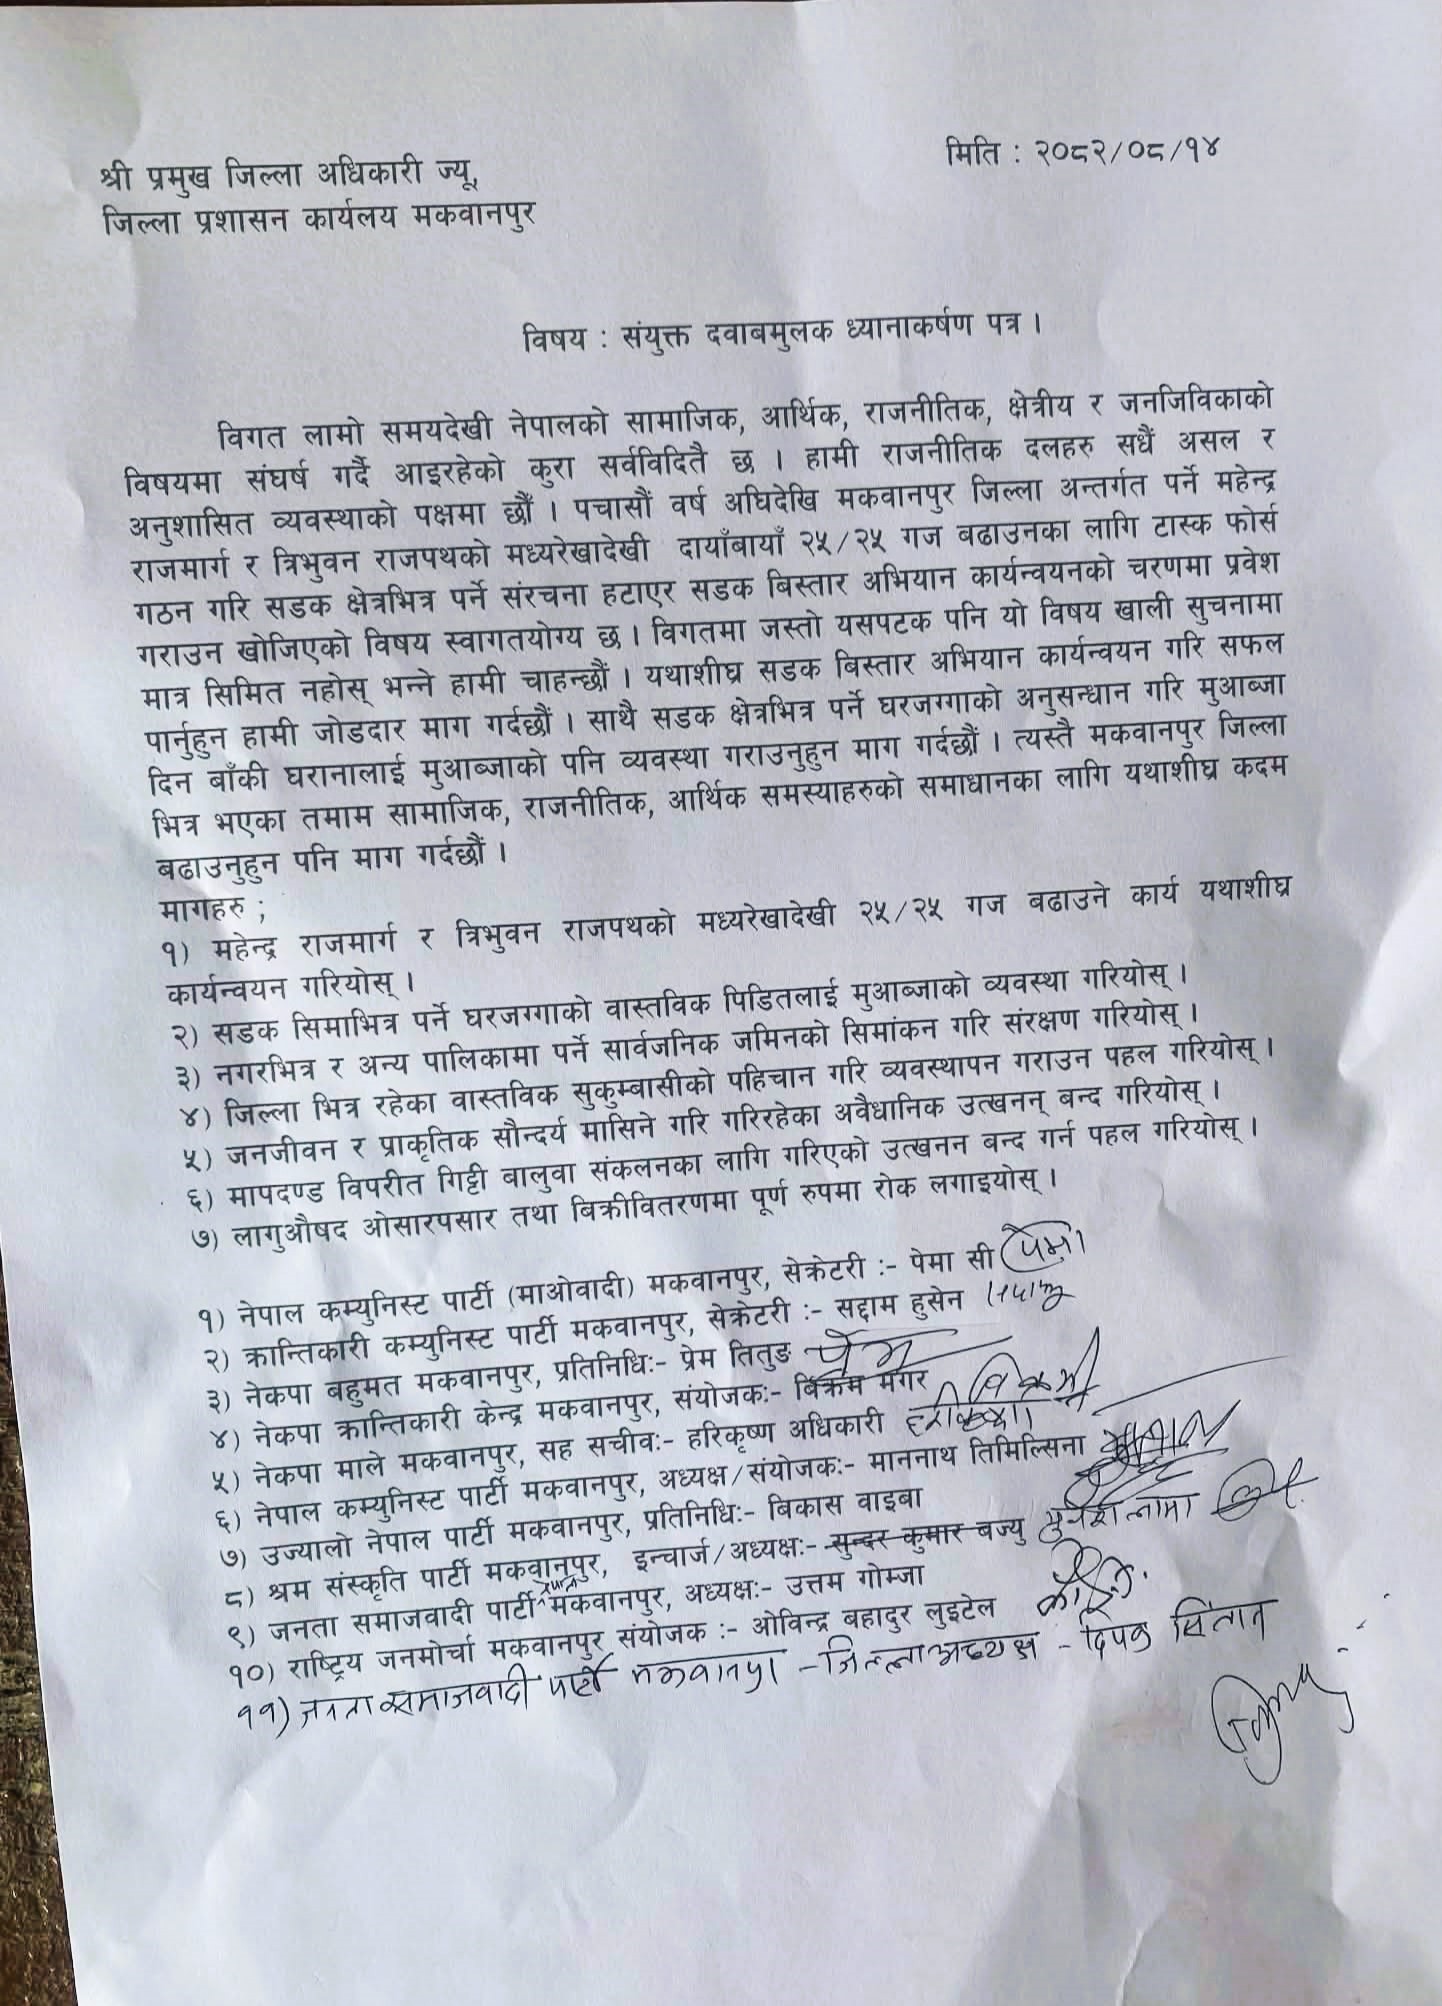 मिति : २०८२/०८/१४
श्री प्रमुख जिल्ला अधिकारी ज्यू,
जिल्ला प्रशासन कार्यलय मकवानपुर
विषय : संयुक्त दवाबमुलक ध्यानाकर्षण पत्र ।
विगत लामो समयदेखी नेपालको सामाजिक, आर्थिक, राजनीतिक, क्षेत्रीय र जनजिविकाको
विषयमा संघर्ष गर्दै आइरहेको कुरा सर्वविदितै छ । हामी राजनीतिक दलहरु सधैं असल र
अनुशासित व्यवस्थाको पक्षमा छौं । पचासौं वर्ष अघिदेखि मकवानपुर जिल्ला अन्तर्गत पर्ने महेन्द्र
राजमार्ग र त्रिभुवन राजपथको मध्यरेखादेखी दायाँबायाँ २५/२५ गज बढाउनका लागि टास्क फोर्स
गठन गरि सडक क्षेत्रभित्र पर्ने संरचना हटाएर सडक बिस्तार अभियान कार्यन्वयनको चरणमा प्रवेश
गराउन खोजिएको विषय स्वागतयोग्य छ । विगतमा जस्तो यसपटक पनि यो विषय खाली सुचनामा
मात्र सिमित नहोस् भन्ने हामी चाहन्छौं । यथाशीघ्र सडक बिस्तार अभियान कार्यन्वयन गरि सफल
पार्नुहुन हामी जोडदार माग गर्दछौं । साथै सडक क्षेत्रभित्र पर्ने घरजग्गाको अनुसन्धान गरि मुआब्जा
दिन बाँकी घरानालाई मुआब्जाको पनि व्यवस्था गराउनुहुन माग गर्दछौं । त्यस्तै मकवानपुर जिल्ला
भित्र भएका तमाम सामाजिक, राजनीतिक, आर्थिक समस्याहरुको समाधानका लागि यथाशीघ्र कदम
बढाउनुहुन पनि माग गर्दछौं ।
मागहरु ;
१) महेन्द्र राजमार्ग र त्रिभुवन राजपथको मध्यरेखादेखी २५/२५ गज बढाउने कार्य यथाशीघ्र
कार्यन्वयन गरियोस् ।
२) सडक सिमाभित्र पर्ने घरजग्गाको वास्तविक पिडितलाई मुआब्जाको व्यवस्था गरियोस् ।
३) नगरभित्र र अन्य पालिकामा पर्ने सार्वजनिक जमिनको सिमांकन गरि संरक्षण गरियोस् ।
४) जिल्ला भित्र रहेका वास्तविक सुकुम्बासीको पहिचान गरि व्यवस्थापन गराउन पहल गरियोस् ।
५) जनजीवन र प्राकृतिक सौन्दर्य मासिने गरि गरिरहेका अवैधानिक उत्खनन् बन्द गरियोस् ।
६) मापदण्ड विपरीत गिट्टी बालुवा संकलनका लागि गरिएको उत्खनन बन्द गर्न पहल गरियोस् ।
७) लागुऔषद ओसारपसार तथा बिक्रीवितरणमा पूर्ण रुपमा रोक लगाइयोस् ।
१) नेपाल कम्युनिस्ट पार्टी (माओवादी) मकवानपुर, सेक्रेटरी :- पेमा सी पेमा
२) क्रान्तिकारी कम्युनिस्ट पार्टी मकवानपुर, सेक्रेटरी :- सद्दाम हुसेन
३) नेकपा बहुमत मकवानपुर, प्रतिनिधि:- प्रेम तितुङ प्रेम
४) नेकपा क्रान्तिकारी केन्द्र मकवानपुर, संयोजक:- बिक्रम मगर विक्रम
५) नेकपा माले मकवानपुर, सह सचीव:- हरिकृष्ण अधिकारी
६) नेपाल कम्युनिस्ट पार्टी मकवानपुर, अध्यक्ष/संयोजक:- माननाथ तिमिल्सिना
७) उज्यालो नेपाल पार्टी मकवानपुर, प्रतिनिधि:- बिकास वाइबा
८) श्रम संस्कृति पार्टी मकवानपुर, इन्चार्ज/अध्यक्ष:- सुन्दर कुमार बज्यु
९) जनता समाजवादी पार्टी मकवानपुर, अध्यक्ष:- उत्तम गोम्जा
१०) राष्ट्रिय जनमोर्चा मकवानपुर संयोजक :- ओविन्द्र बहादुर लुइटेल
११) जनता समाजवादी पार्टी मकवानपुर - जिल्ला अध्यक्ष - दिपक